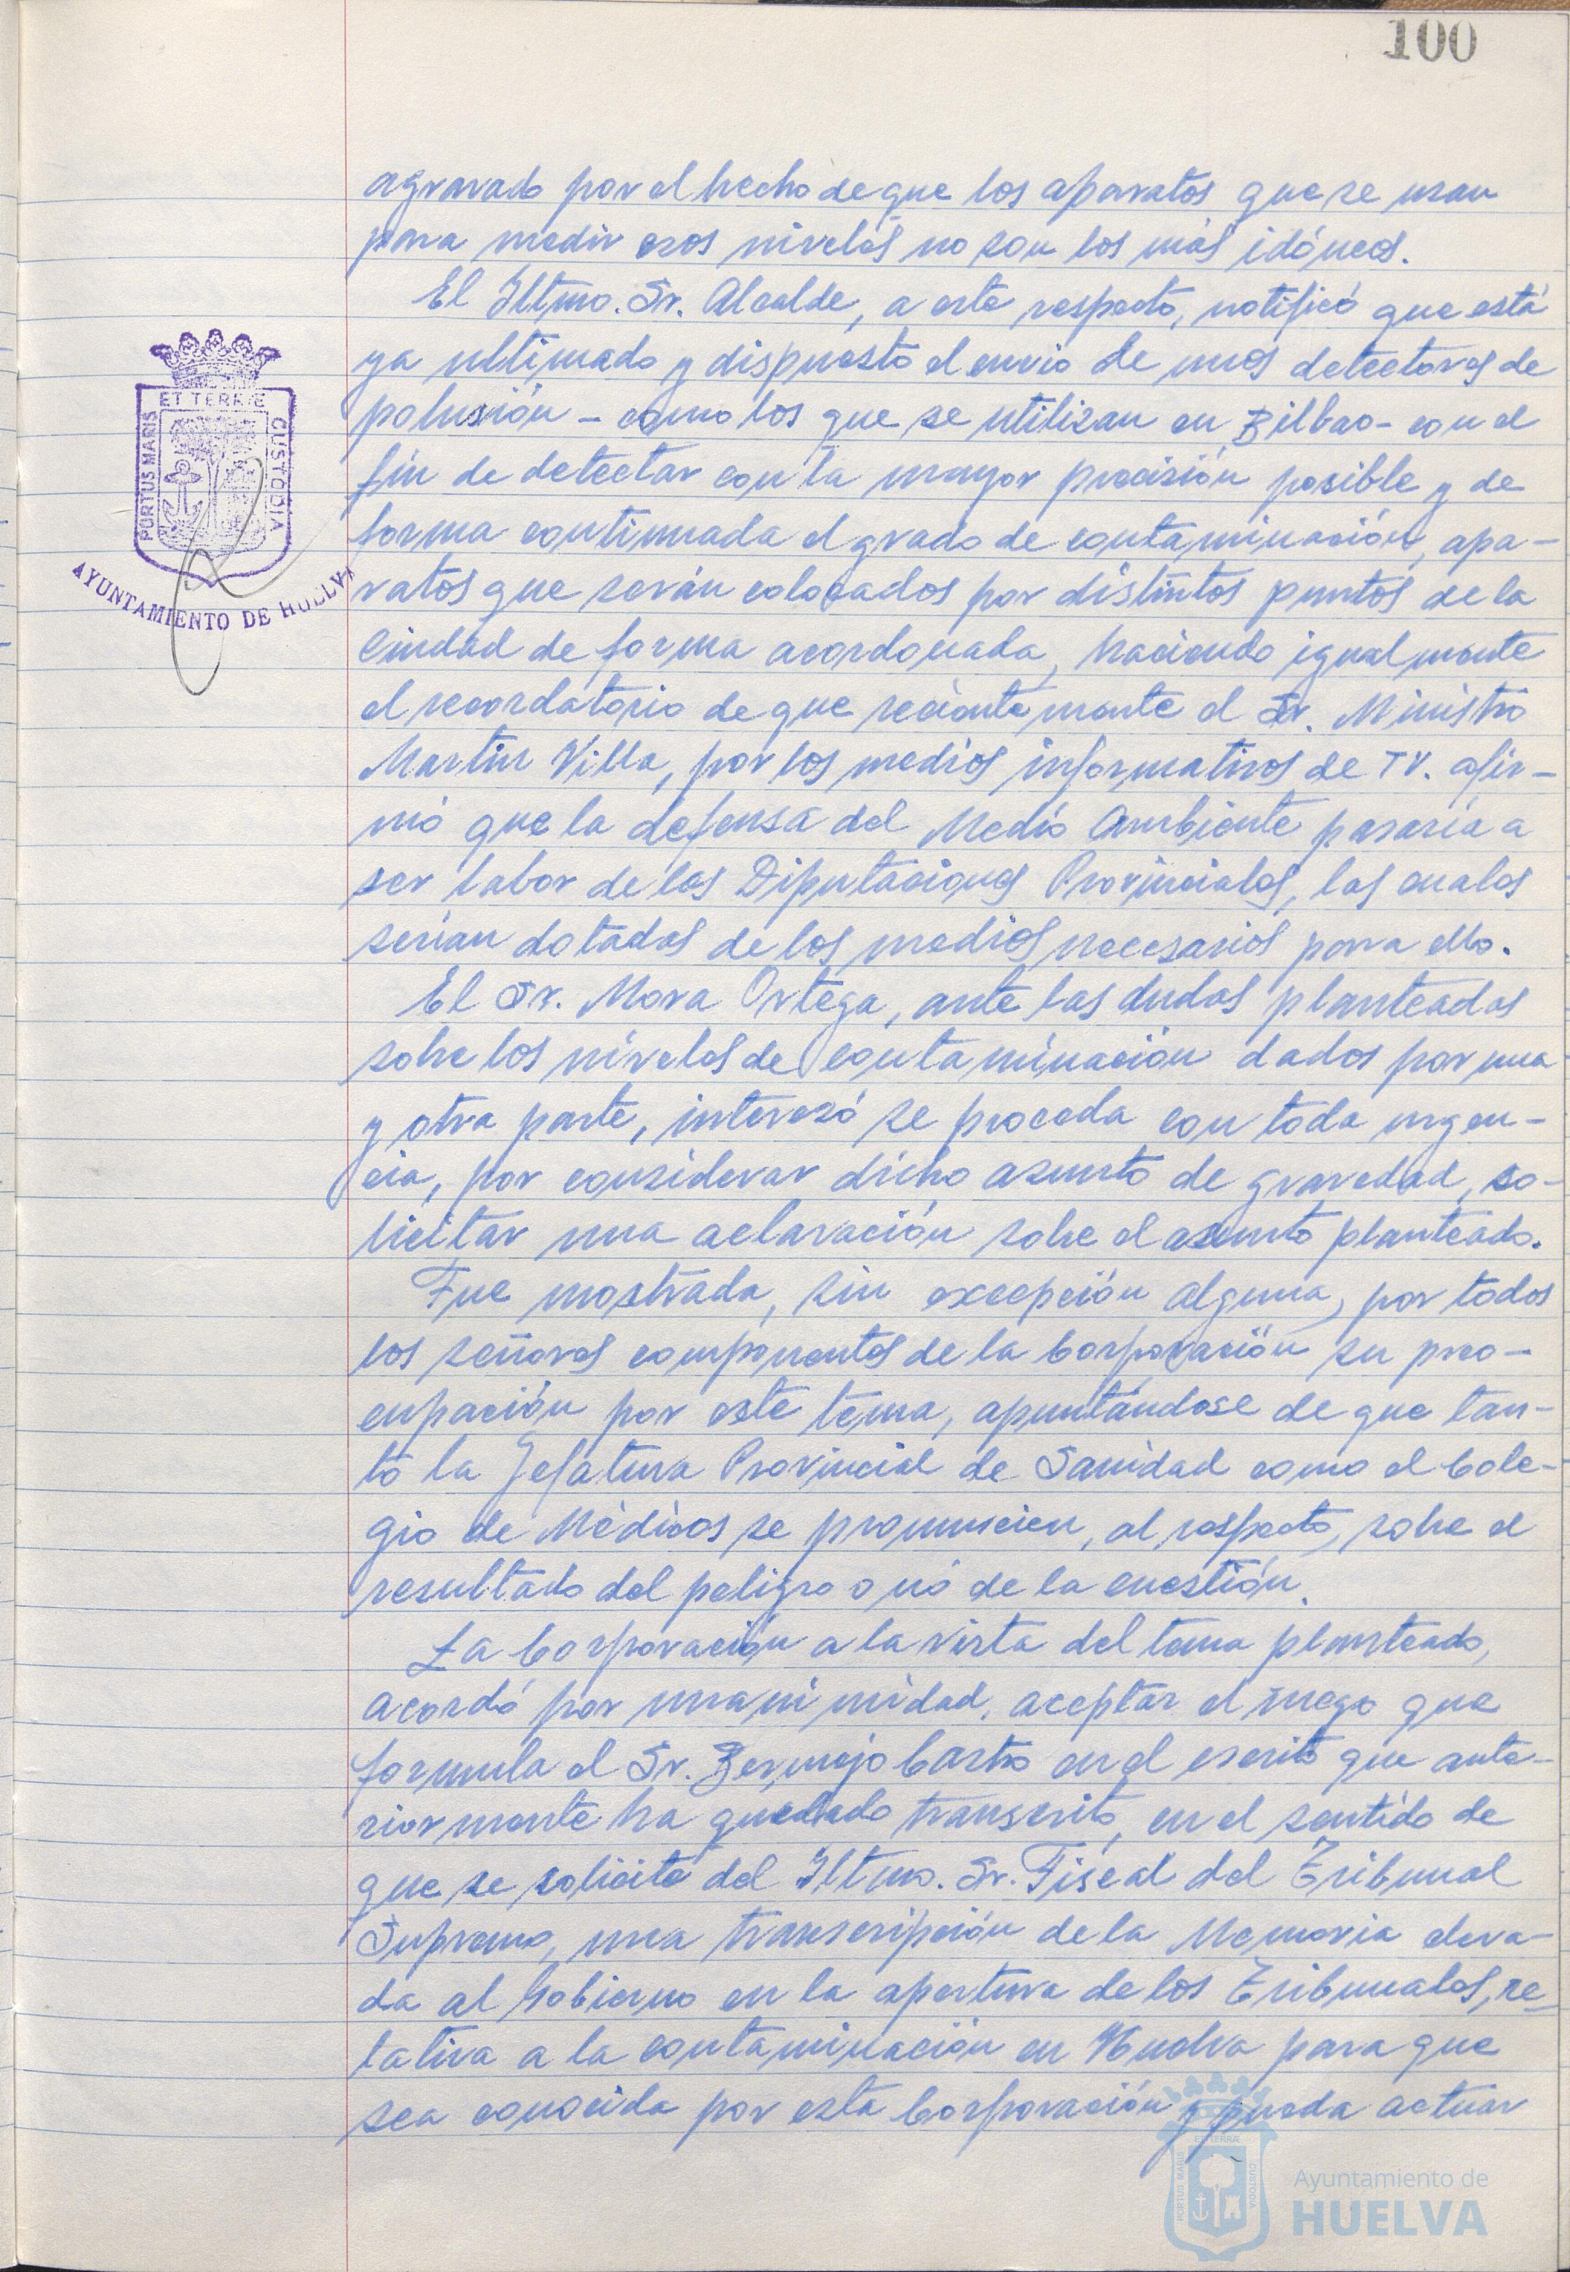 100
agravado por el hecho de que los aparatos que se usan
para medir esos niveles no son los más idóneos.
El Iltmo. Sr. Alcalde, a este respecto, notificó que está
ya ultimado y dispuesto el envio de unos detectores de
polusión - como los que se utilizan en Bilbao - con el
fin de detectar con la mayor precisión posible y de
forma continuada el grado de contaminación, apa-
ratos que serán colocados por distintos puntos de la
Ciudad de forma acordonada, haciendo igualmente
el recordatorio de que recientemente el Sr. Ministro
Martin Villa, por los medios informativos de TV. afir-
mó que la defensa del Medio Ambiente pasaría a
ser labor de las Diputaciones Provinciales, las cuales
serían dotadas de los medios necesarios para ello.
El Sr. Mora Ortega, ante las dudas planteadas
sobre los niveles de contaminación dados por una
y otra parte, interesó se proceda con toda urgen-
cia, por considerar dicho asunto de gravedad, so-
licitar una aclaración sobre el asunto planteado.
Fue mostrada, sin excepción alguna, por todos
los señores componentes de la Corporación su preo-
cupación por este tema, apuntándose de que tan-
to la Jefatura Provincial de Sanidad como el Cole-
gio de Médicos se pronuncien, al respecto, sobre el
resultado del peligro o nó de la cuestión.
La Corporación a la vista del tema planteado,
acordó por unanimidad, aceptar el ruego que
formula el Sr. Bermejo Castro en el escrito que ante-
riormente ha quedado transcrito, en el sentido de
que se solicite del Iltmo. Sr. Fiscal del Tribunal
Supremo, una transcripción de la Memoria eleva-
da al Gobierno en la apertura de los Tribunales, re-
lativa a la contaminación en Huelva para que
sea conocida por esta Corporación y pueda actuar
PORTUS MARIS
ET TERRE
CUSTODIA
AYUNTAMIENTO DE HUELVA
PORTUS MARIS
ET TERRA
CUSTODIA
Ayuntamiento de
HUELVA